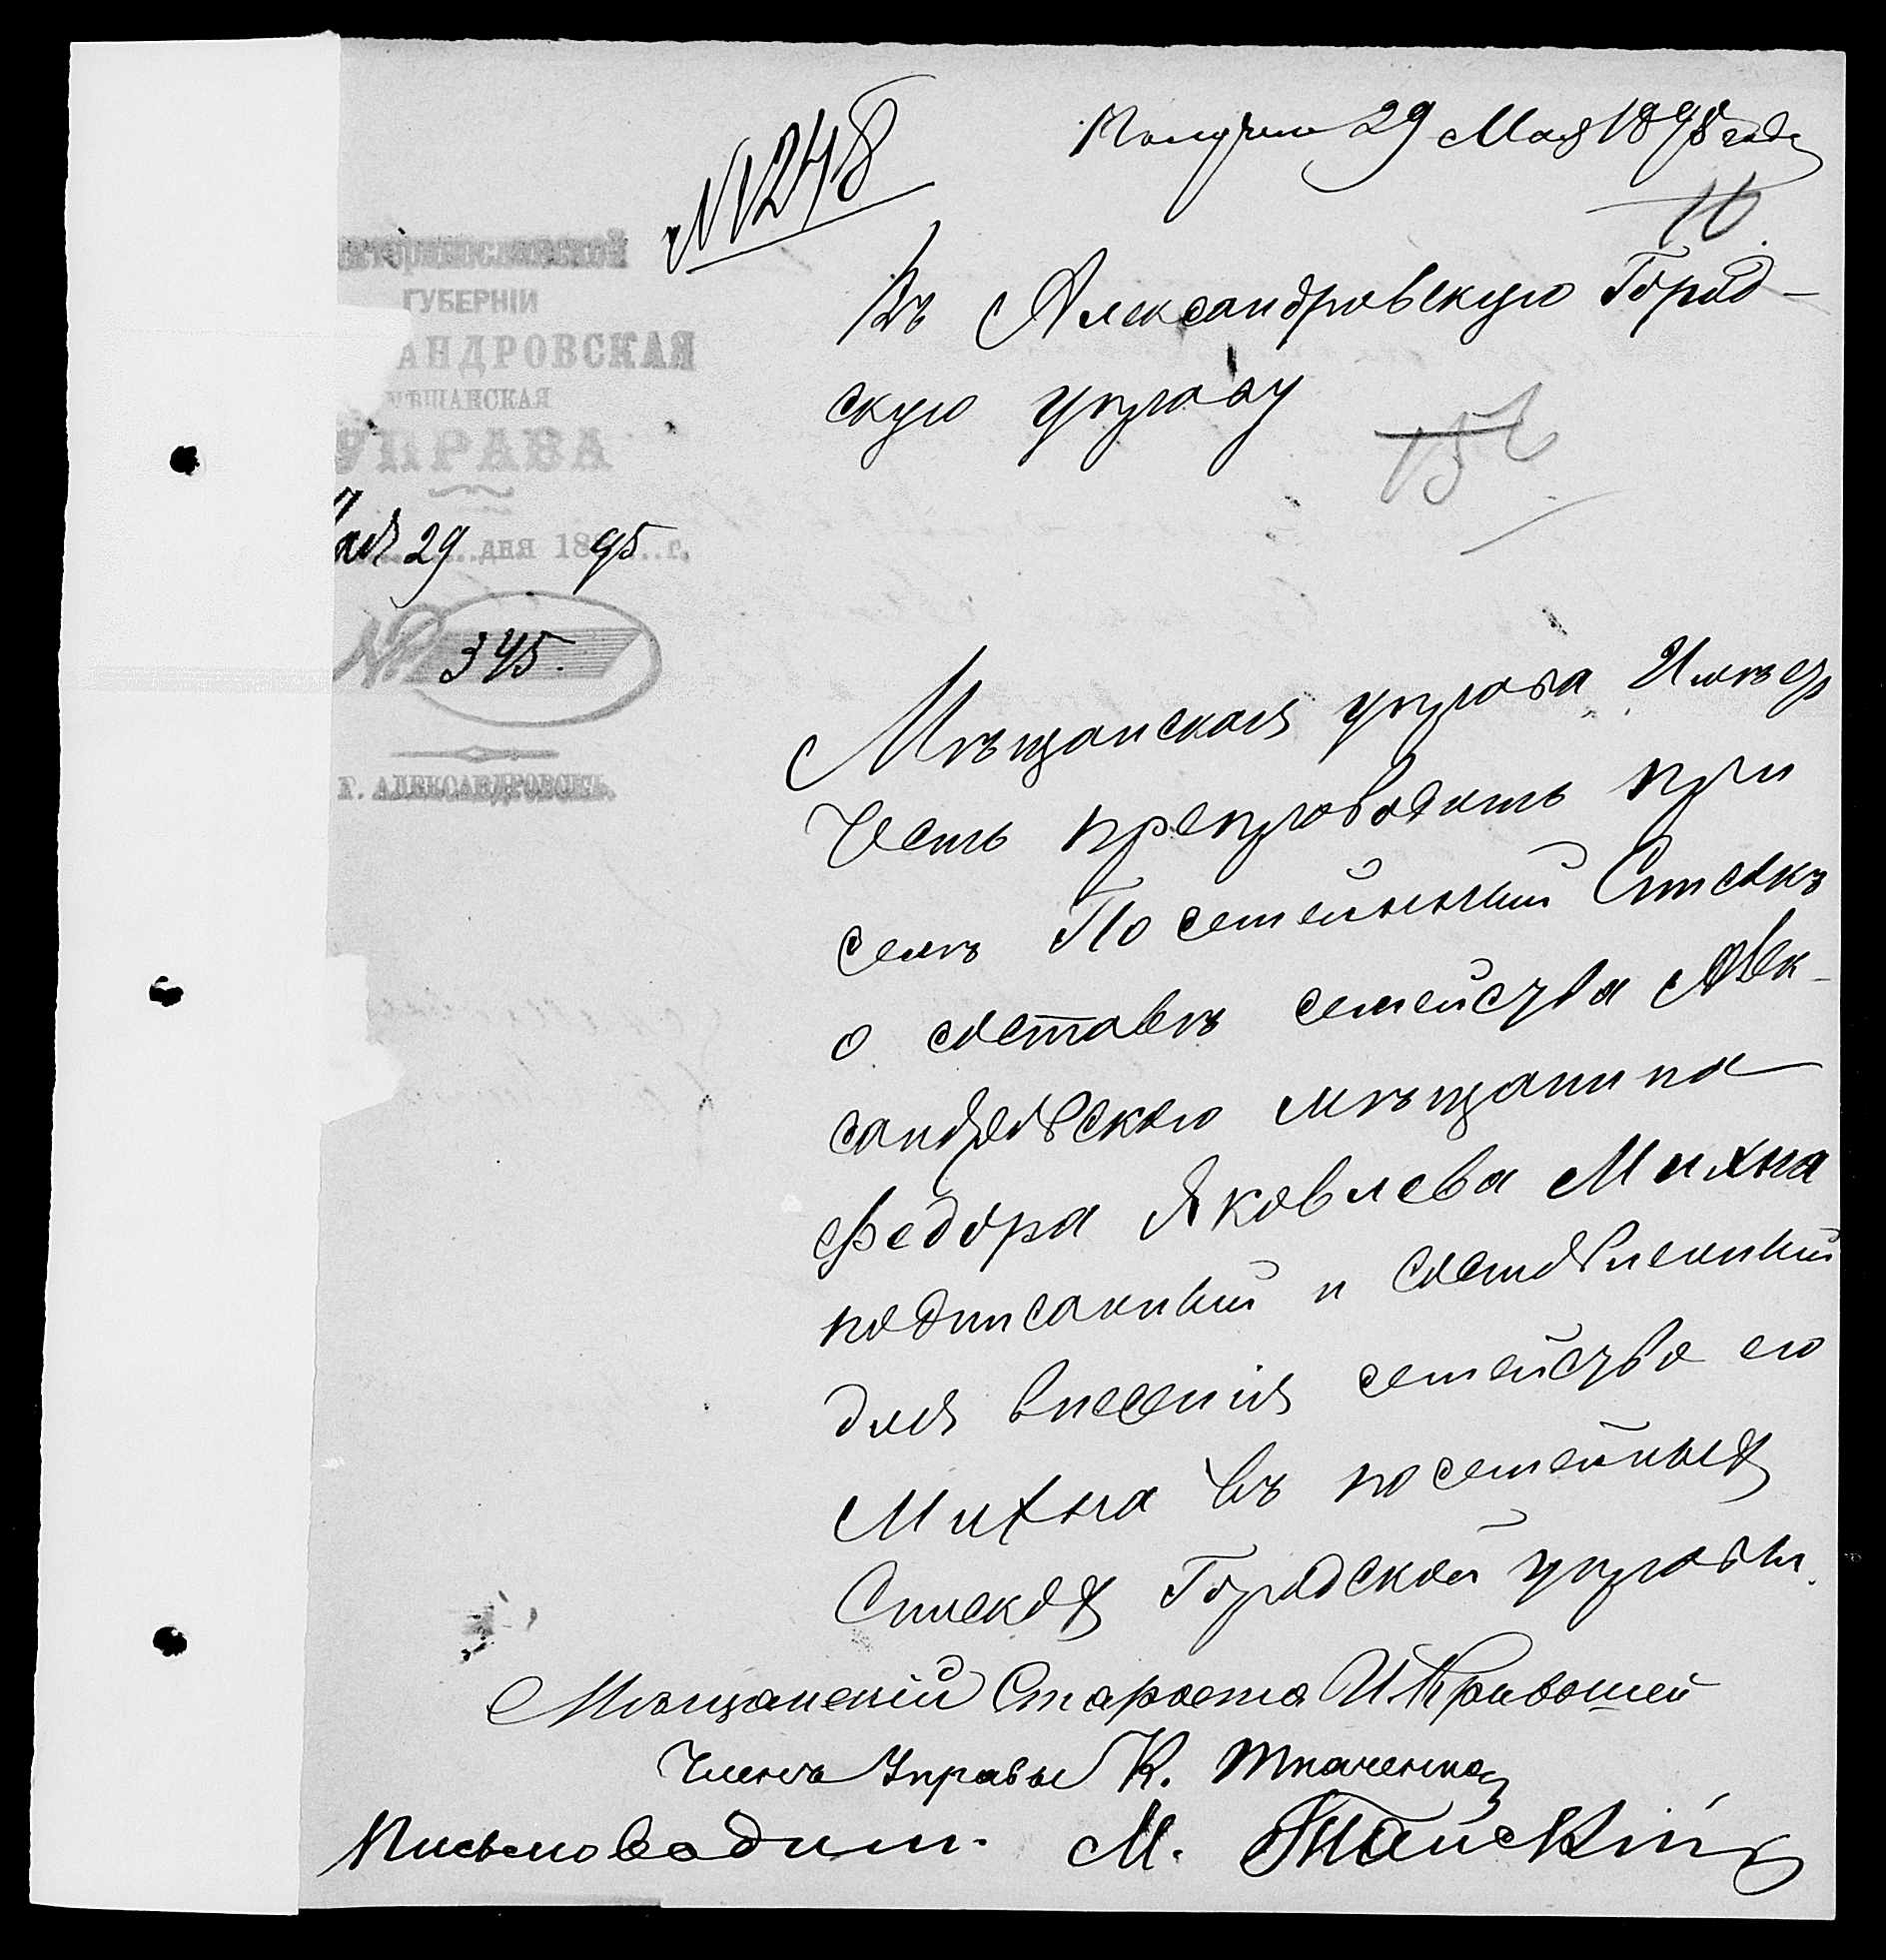 № 248
Получено 29 Мая 1895 года
10
катеринославской
ГУБЕРНІИ
АНДРОВСКАЯ
МѢЩАНСКАЯ
УПРАВА
Мая 29 дня 1895 г.
№ 345.
Г. АЛЕКСАНДРОВСКЪ.
Въ Александровскую Город-
скую управу
Мѣщанская управа Имѣетъ
честь препроводить при
семъ Посемейный Списокъ
о составѣ семейства Алек-
сандровскаго мѣщанина
Федора Яковлева Михна
подписанный и составленный
для внесенія семейства его
Михна въ посемейныя
Списки Городской управы.
Мѣщанскій Староста И Кривошей
Членъ Управы К. Ткаченко
Письмоводит. М.